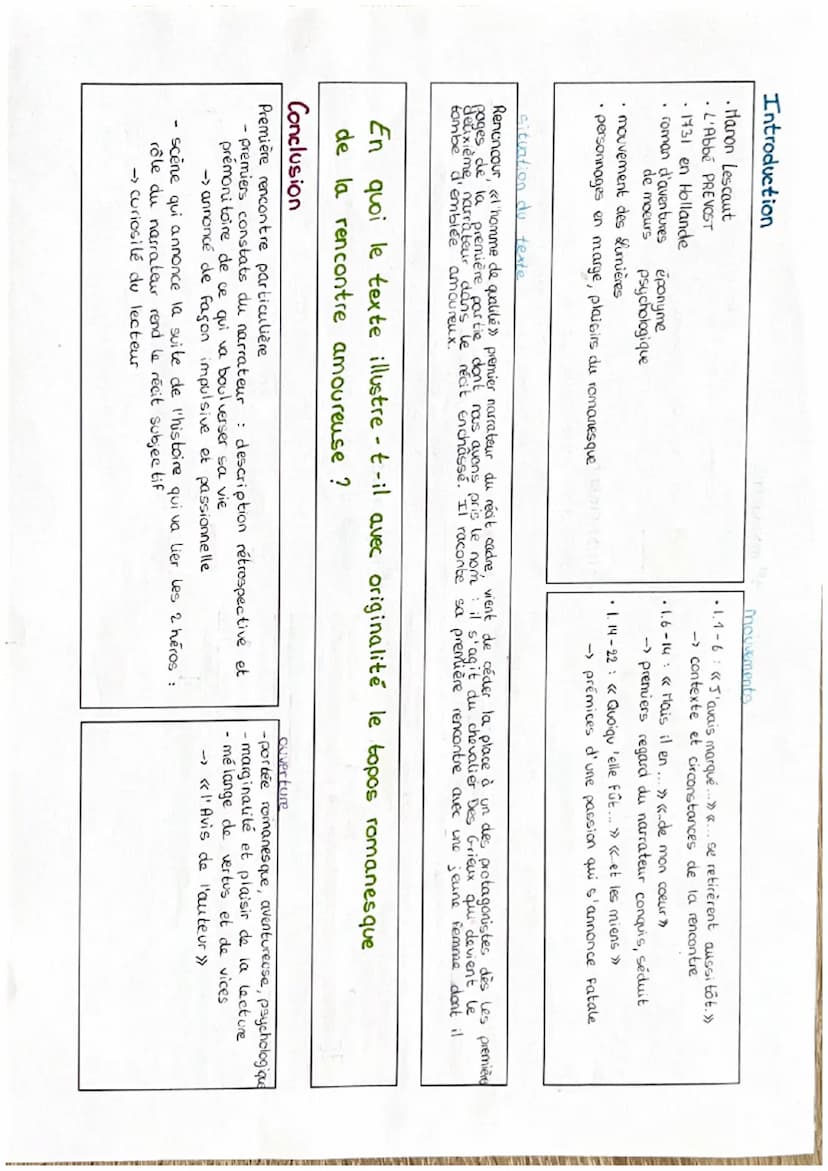 Introduction
• Manon Lescaut
• L'Abbé PREVOST
• 1731 en Hollande
• roman d'aventures éponyme
de moeurs psychologique
• mouvement des lumières
• personnages en marge, plaisirs du romanesque
mouvements
• l.1-6 : « J'avais marqué...» «... se retirèrent aussitôt.»
→ contexte et circonstances de la rencontre
• l.6-14 : « Mais il en ...» «...de mon coeur»
→ premiers regard du narrateur conquis, séduit
• l.14-22 : « Quoiqu'elle fût...» «...et les miens »
→ prémices d'une passion qui s'annonce fatale
situation du texte
Renoncour «l'homme de qualité» premier narrateur du récit cadre, vient de céder la place à un des protagonistes dès les première
pages de la première partie dont nous avons pris le nom : il s'agit du chevalier Des Grieux qui devient le
deuxième narrateur dans le récit enchâssé. Il raconte sa première rencontre avec une jeune femme dont il
tombe d'emblée amoureux.
En quoi le texte illustre-t-il avec originalité le topos romanesque
de la rencontre amoureuse ?
Conclusion
Première rencontre particulière
- premiers constats du narrateur : description rétrospective et
prémonitoire de ce qui va boulverser sa vie
→ annoncé de façon impulsive et passionnelle
- scène qui annonce la suite de l'histoire qui va lier les 2 héros :
rôle du narrateur rend le récit subjectif
→ curiosité du lecteur
ouverture
- portée romanesque, aventureuse, psychologique
- marginalité et plaisir de la lecture
- mélange de vertus et de vices
→ «l'Avis de l'auteur»